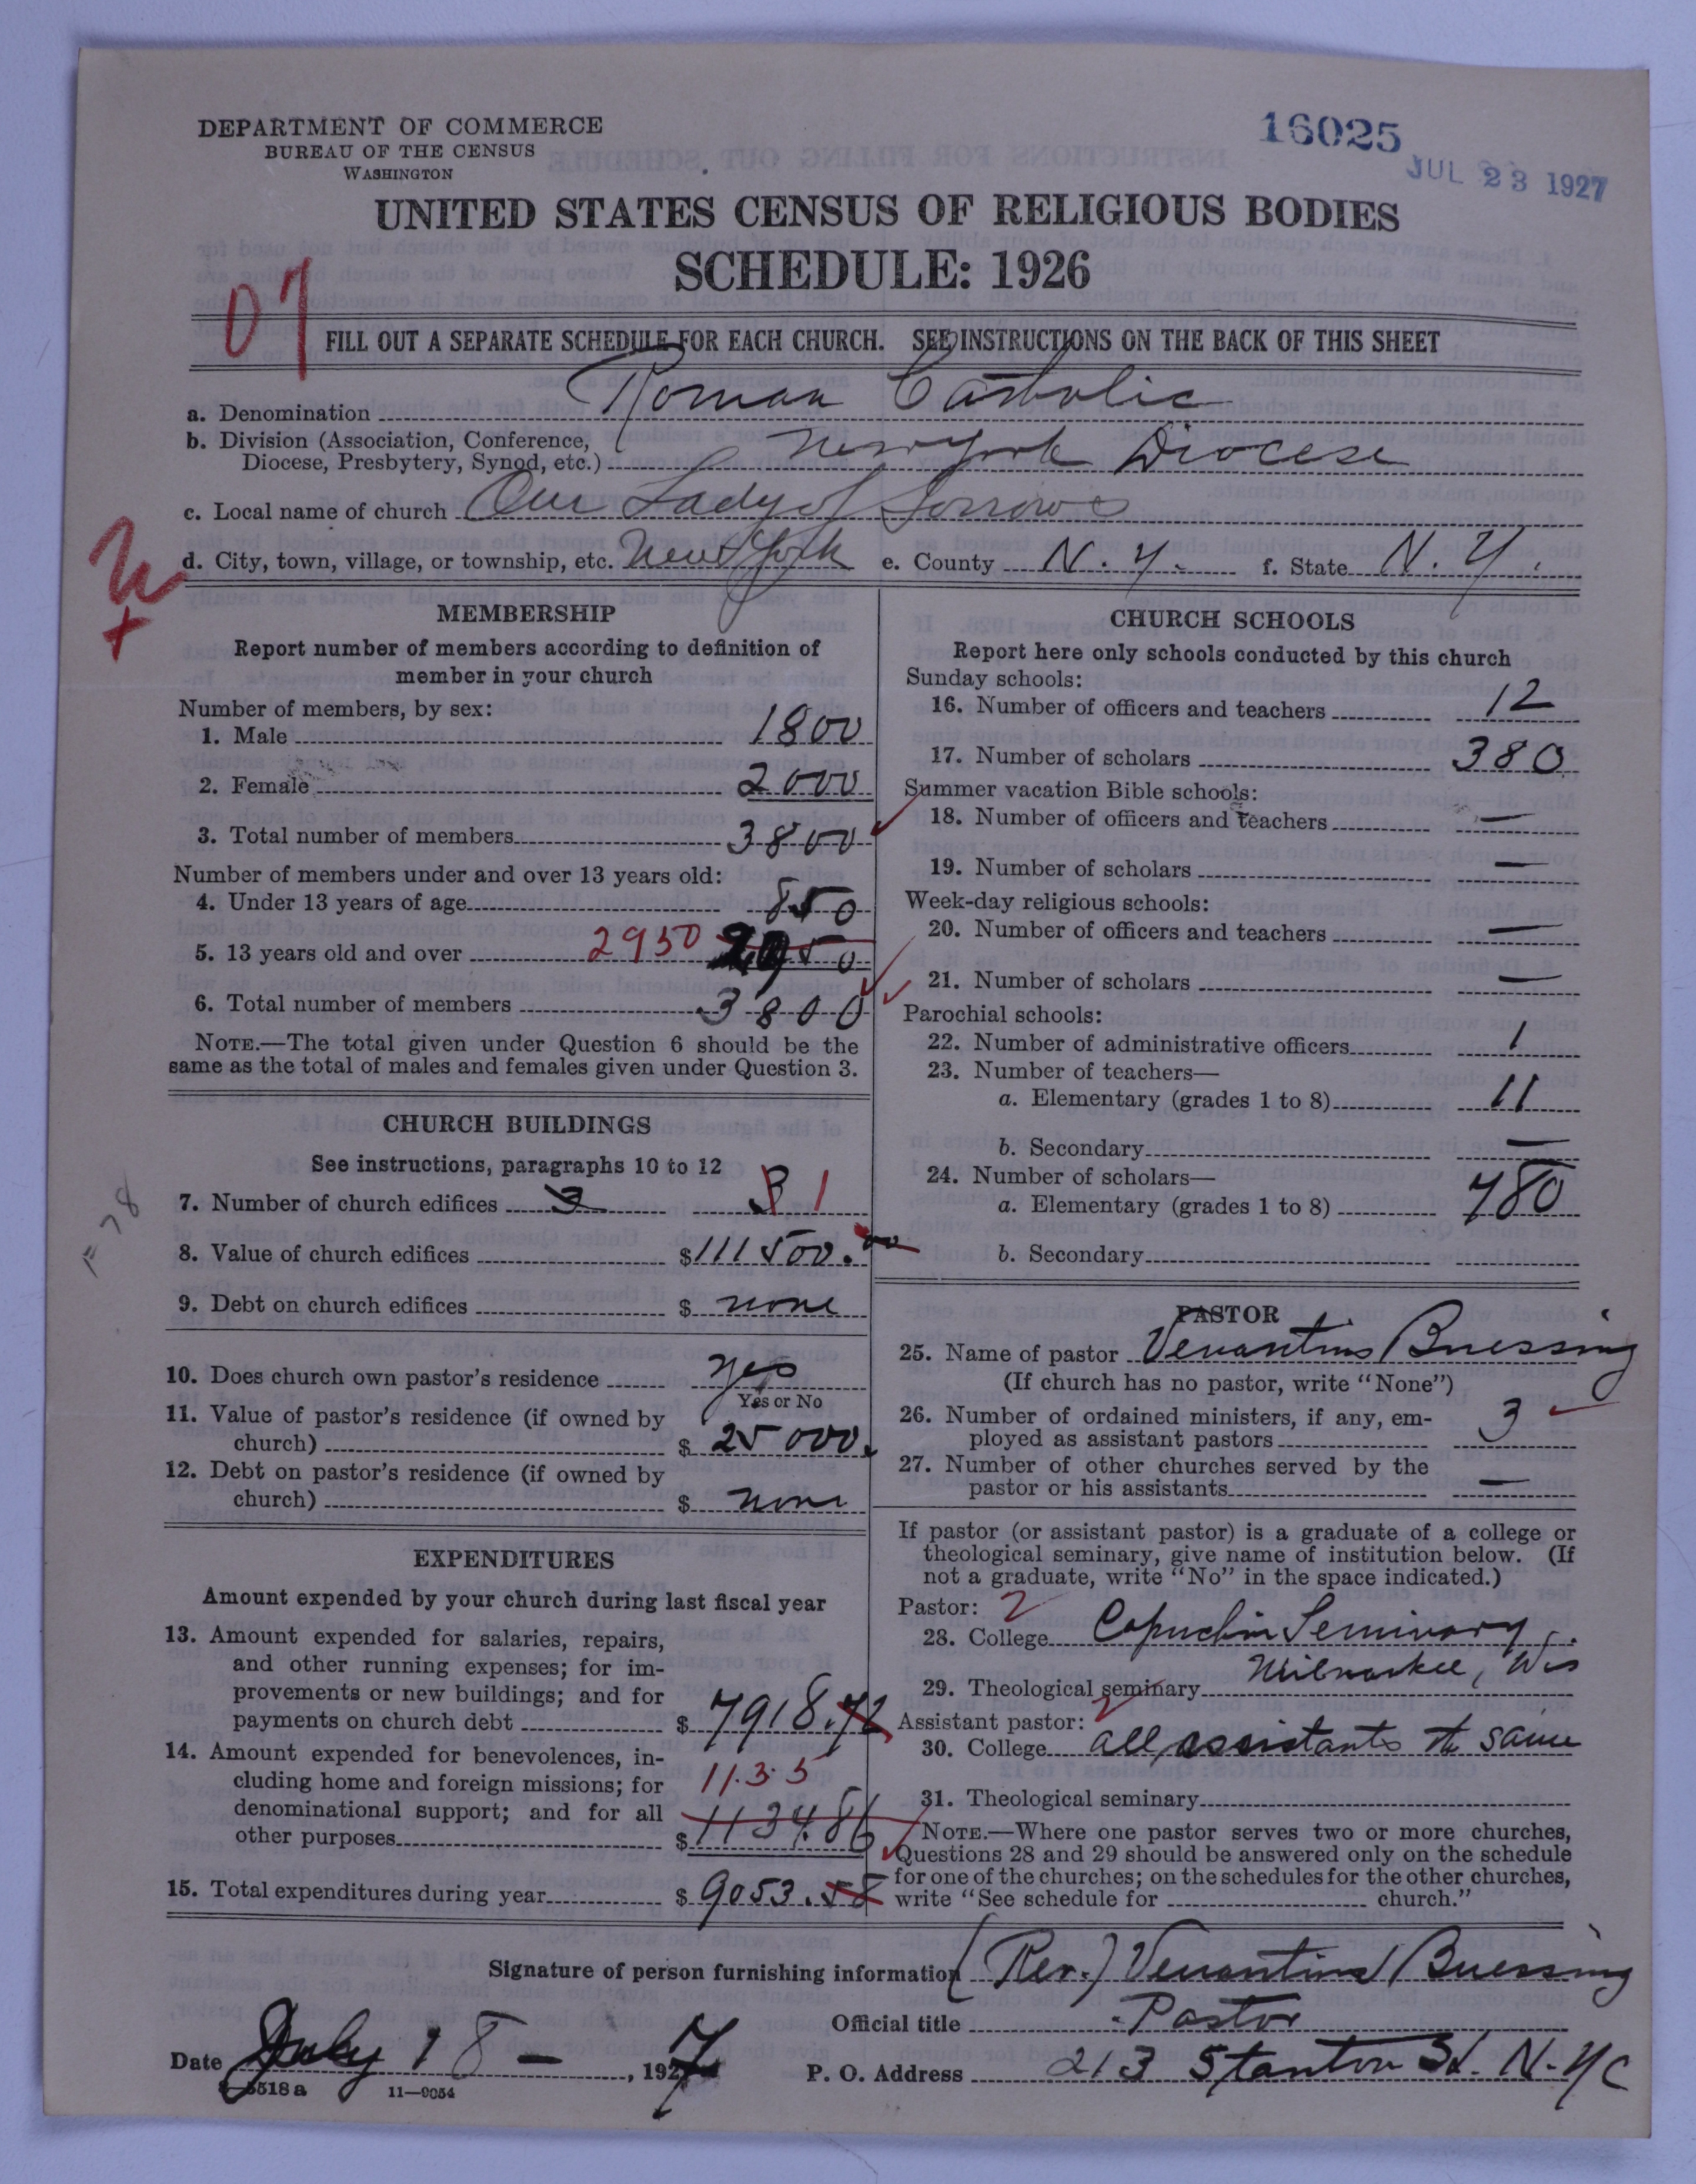 DEPARTMENT OF COMMERCE
BUREAU OF THE CENSUS
WASHINGTON
16025
JUL 23 1927
UNITED STATES CENSUS OF RELIGIOUS BODIES
SCHEDULE: 1926
07
FILL OUT A SEPARATE SCHEDULE FOR EACH CHURCH. SEE INSTRUCTIONS ON THE BACK OF THIS SHEET
a. Denomination Roman Catholic
b. Division (Association, Conference,
Diocese, Presbytery, Synod, etc.) New York Diocese
c. Local name of church Our Lady of Sorrows
d. City, town, village, or township, etc. New York e. County N.Y. f. State N.Y.
MEMBERSHIP
Report number of members according to definition of
member in your church
Number of members, by sex:
1. Male 1800
2. Female 2000
3. Total number of members 3800
Number of members under and over 13 years old:
4. Under 13 years of age 850
5. 13 years old and over 2950 2950
6. Total number of members 3800
NOTE.—The total given under Question 6 should be the
same as the total of males and females given under Question 3.
CHURCH BUILDINGS
See instructions, paragraphs 10 to 12
7. Number of church edifices 3 3 1
8. Value of church edifices $111500.00
9. Debt on church edifices $ none
10. Does church own pastor's residence yes
Yes or No
11. Value of pastor's residence (if owned by
church) $ 25000.
12. Debt on pastor's residence (if owned by
church) $ none
EXPENDITURES
Amount expended by your church during last fiscal year
13. Amount expended for salaries, repairs,
and other running expenses; for im-
provements or new buildings; and for
payments on church debt $ 7918.72
14. Amount expended for benevolences, in-
cluding home and foreign missions; for 1135
denominational support; and for all
other purposes $ 1134.86
15. Total expenditures during year $ 9053.58
CHURCH SCHOOLS
Report here only schools conducted by this church
Sunday schools:
16. Number of officers and teachers 12
17. Number of scholars 380
Summer vacation Bible schools:
18. Number of officers and teachers —
19. Number of scholars —
Week-day religious schools:
20. Number of officers and teachers —
21. Number of scholars —
Parochial schools:
22. Number of administrative officers 1
23. Number of teachers—
a. Elementary (grades 1 to 8) 11
b. Secondary —
24. Number of scholars—
a. Elementary (grades 1 to 8) 480
b. Secondary
PASTOR
25. Name of pastor Venantius Buessing
(If church has no pastor, write "None")
26. Number of ordained ministers, if any, em-
ployed as assistant pastors 3
27. Number of other churches served by the
pastor or his assistants —
If pastor (or assistant pastor) is a graduate of a college or
theological seminary, give name of institution below. (If
not a graduate, write "No" in the space indicated.)
Pastor: 2
28. College Capuchin Seminary
Milwaukee, Wis
29. Theological seminary
Assistant pastor: 2
30. College all assistants the same
31. Theological seminary
NOTE.—Where one pastor serves two or more churches,
Questions 28 and 29 should be answered only on the schedule
for one of the churches; on the schedules for the other churches,
write "See schedule for church."
Signature of person furnishing information (Rev.) Venantius Buessing
Official title Pastor
Date July 18 — , 1927 P. O. Address 213 Stanton St. N.Y.C
8-5518a 11—9054